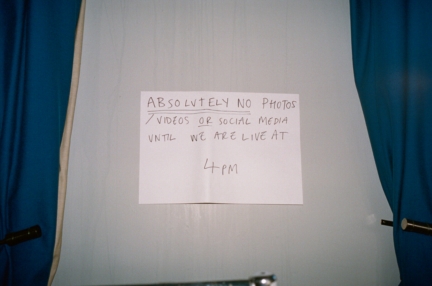 ABSOLUTELY NO PHOTOS
/VIDEOS OR SOCIAL MEDIA
UNTIL WE ARE LIVE AT
4PM